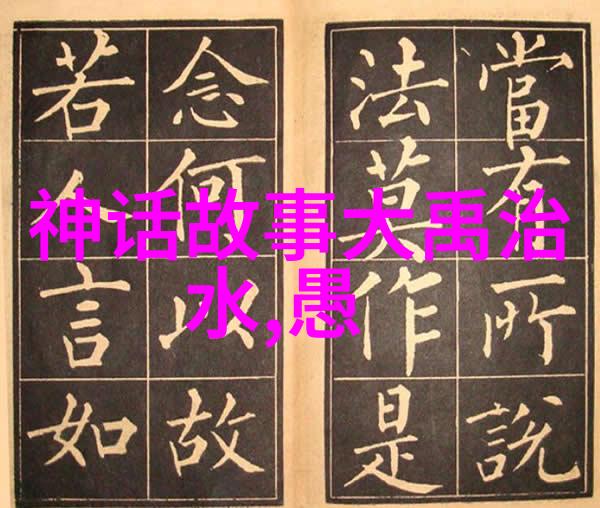 神话故事大禹治
水,愚
當有所說
法莫作是
念何以故
若人言如